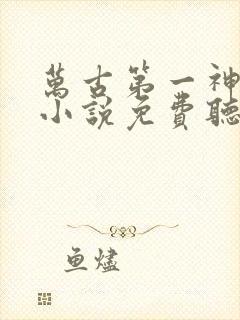 萬古第一神
小說免費聽
魚燼